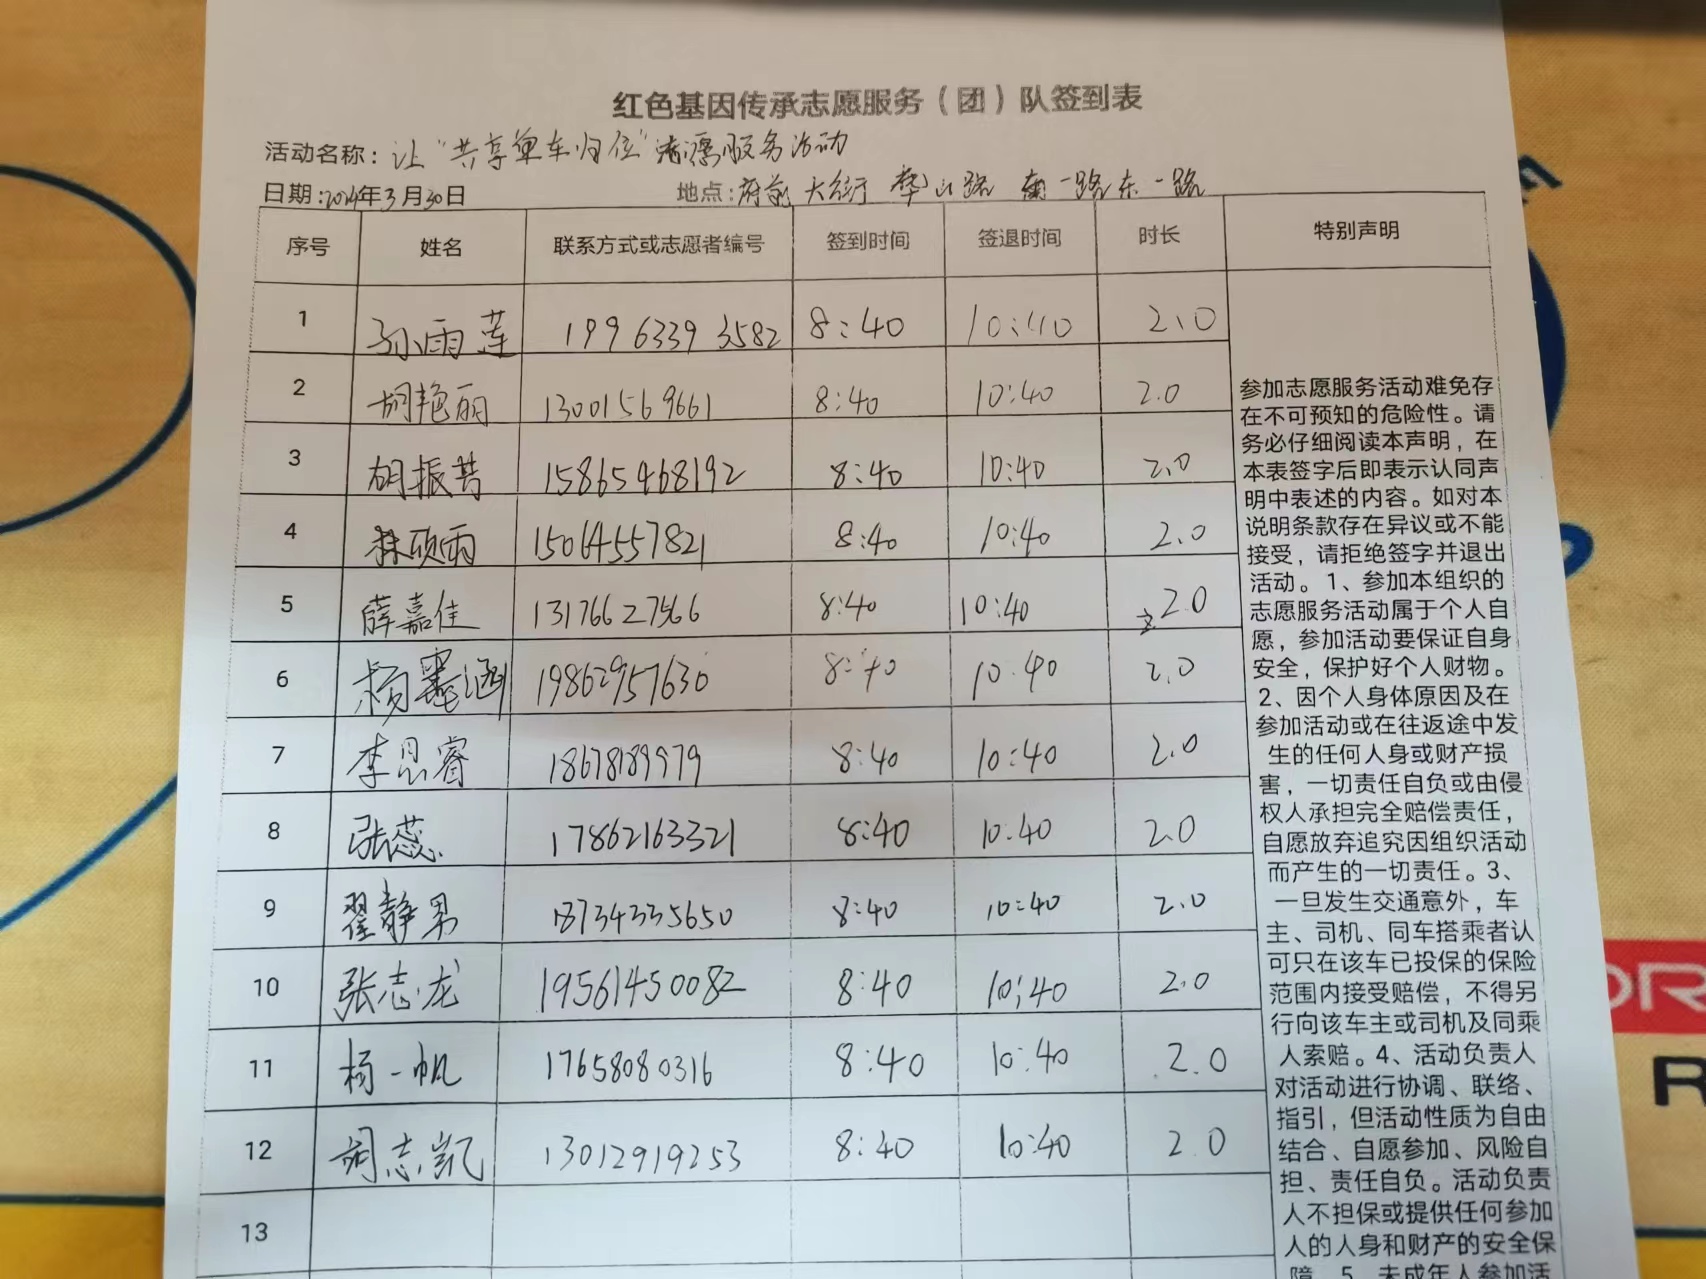 红色基因传承志愿服务（团）队签到表
活动名称：让“共享单车归位”志愿服务活动
日期：2024年3月30日 地点：府前大街 华山路 南一路 东一路
序号 姓名 联系方式或志愿者编号 签到时间 签退时间 时长 特别声明
1 孙雨莲 19963393582 8:40 10:40 2.0
2 胡艳丽 13001569661 8:40 10:40 2.0
3 胡振 15865468192 8:40 10:40 2.0
4 林硕雨 15064557821 8:40 10:40 2.0
5 薛嘉佳 13176627566 8:40 10:40 2.0
6 杨 涵 19862957630 8:40 10:40 2.0
7 李思睿 18678189979 8:40 10:40 2.0
8 张蕊 17862163321 8:40 10:40 2.0
9 翟静男 18734335650 8:40 10:40 2.0
10 张志龙 19561450082 8:40 10:40 2.0
11 杨一帆 17658080316 8:40 10:40 2.0
12 胡志凯 13012919253 8:40 10:40 2.0
13
参加志愿服务活动难免存
在不可预知的危险性。请
务必仔细阅读本声明，在
本表签字后即表示认同声
明中表述的内容。如对本
说明条款存在异议或不能
接受，请拒绝签字并退出
活动。1、参加本组织的
志愿服务活动属于个人自
愿，参加活动要保证自身
安全，保护好个人财物。
2、因个人身体原因及在
参加活动或在往返途中发
生的任何人身或财产损
害，一切责任自负或由侵
权人承担完全赔偿责任，
自愿放弃追究因组织活动
而产生的一切责任。3、
一旦发生交通意外，车
主、司机、同车搭乘者认
可只在该车已投保的保险
范围内接受赔偿，不得另
行向该车主或司机及同乘
人索赔。4、活动负责人
对活动进行协调、联络、
指引，但活动性质为自由
结合、自愿参加、风险自
担、责任自负。活动负责
人不担保或提供任何参加
人的人身和财产的安全保
障。5、未成年人参加活